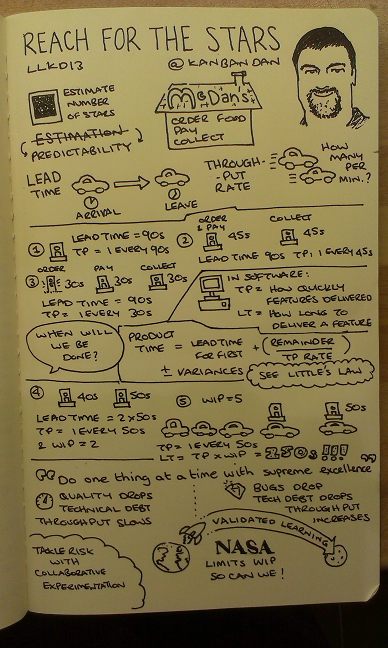 REACH FOR THE STARS
LLKD13
@KANBANDAN
ESTIMATE
NUMBER
OF STARS
ESTIMATION
PREDICTABILITY
McDan's
ORDER FOOD
PAY
COLLECT
THROUGH-
-PUT
RATE
HOW
MANY
PER
MIN.?
LEAD
TIME
ARRIVAL
LEAVE
1 LEAD TIME = 90s
TP = 1 EVERY 90s
2 ORDER
& PAY
45s
COLLECT
45s
LEAD TIME 90s TP: 1 EVERY 45s
3 ORDER
30s
PAY
30s
COLLECT
30s
LEAD TIME = 90s
TP = 1 EVERY 30s
IN SOFTWARE:
TP = HOW QUICKLY
FEATURES DELIVERED
LT = HOW LONG TO
DELIVER A FEATURE
WHEN WILL
WE BE
DONE?
PRODUCT
TIME = LEADTIME
FOR FIRST
+ (REMAINDER
TP RATE)
± VARIANCES
SEE LITTLE'S LAW
4 40s 50s
LEAD TIME = 2x50s
TP = 1 EVERY 50s
& WIP = 2
5 WIP=5
50s
TP = 1 EVERY 50s
LT = TP x WIP = 250s!!!
"Do one thing at a time with supreme excellence"
QUALITY DROPS
TECHNICAL DEBT
THROUGHPUT SLOWS
BUGS DROP
TECH DEBT DROPS
THROUGHPUT
INCREASES
VALIDATED LEARNING
TACKLE RISK
WITH
COLLABORATIVE
EXPERIMENTATION
NASA
LIMITS WIP
SO CAN WE!